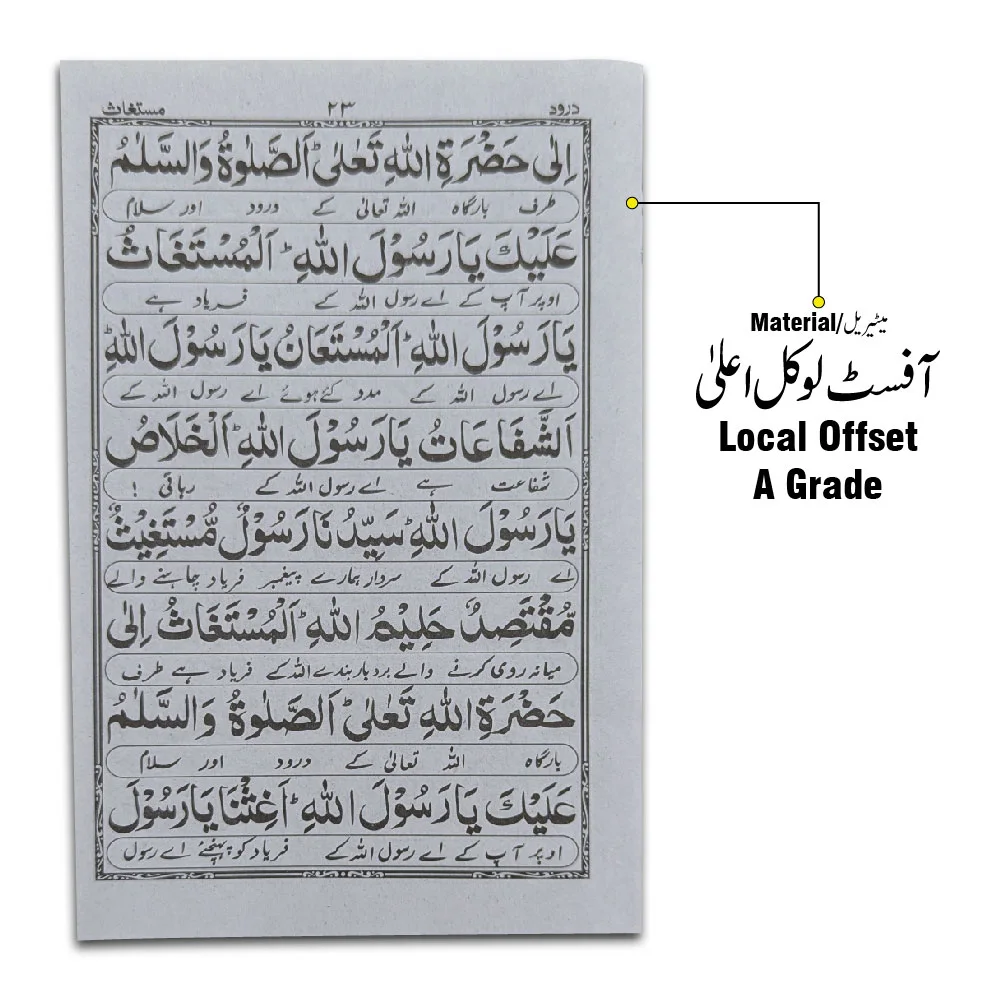 درود ۲۳ مستغاث
اِلٰى حَضْرَةِ اللهِ تَعَالٰىؕ اَلصَّلٰوةُ وَالسَّلٰمُ
طرف بارگاہ اللہ تعالیٰ کے درود اور سلام
عَلَيْكَ يَا رَسُوْلَ اللهِؕ اَلْمُسْتَغَاثُ
اوپر آپ کے اے رسول اللہ کے فریاد ہے
يَا رَسُوْلَ اللهِ اَلْمُسْتَعَانُ يَا رَسُوْلَ اللهِؕ
اے رسول اللہ کے مدد کئے ہوئے اے رسول اللہ کے
اَلشَّفَاعَاتُ يَا رَسُوْلَ اللهِؕ اَلْخَلَاصُ
شفاعت ہے اے رسول اللہ کے رہائی !
يَا رَسُوْلَ اللهِؕ سَيِّدُنَا رَسُوْلٌ مُّسْتَغِيْثٌ
اے رسول اللہ کے سردار ہمارے پیغمبر فریاد چاہنے والے
مُّقْتَصِدٌ حَلِيْمُ اللهِؕ اَلْمُسْتَغَاثُ اِلٰى
میانہ روی کرنے والے بردبار بندے اللہ کے فریاد ہے طرف
حَضْرَةِ اللهِ تَعَالٰىؕ اَلصَّلٰوةُ وَالسَّلٰمُ
بارگاہ اللہ تعالیٰ کے درود اور سلام
عَلَيْكَ يَا رَسُوْلَ اللهِؕ اَغِثْنَا يَا رَسُوْلَ
اوپر آپ کے اے رسول اللہ کے فریاد کو پہنچئے اے رسول
Material/میٹیریل
آفسٹ لوکل اعلیٰ
Local Offset
A Grade